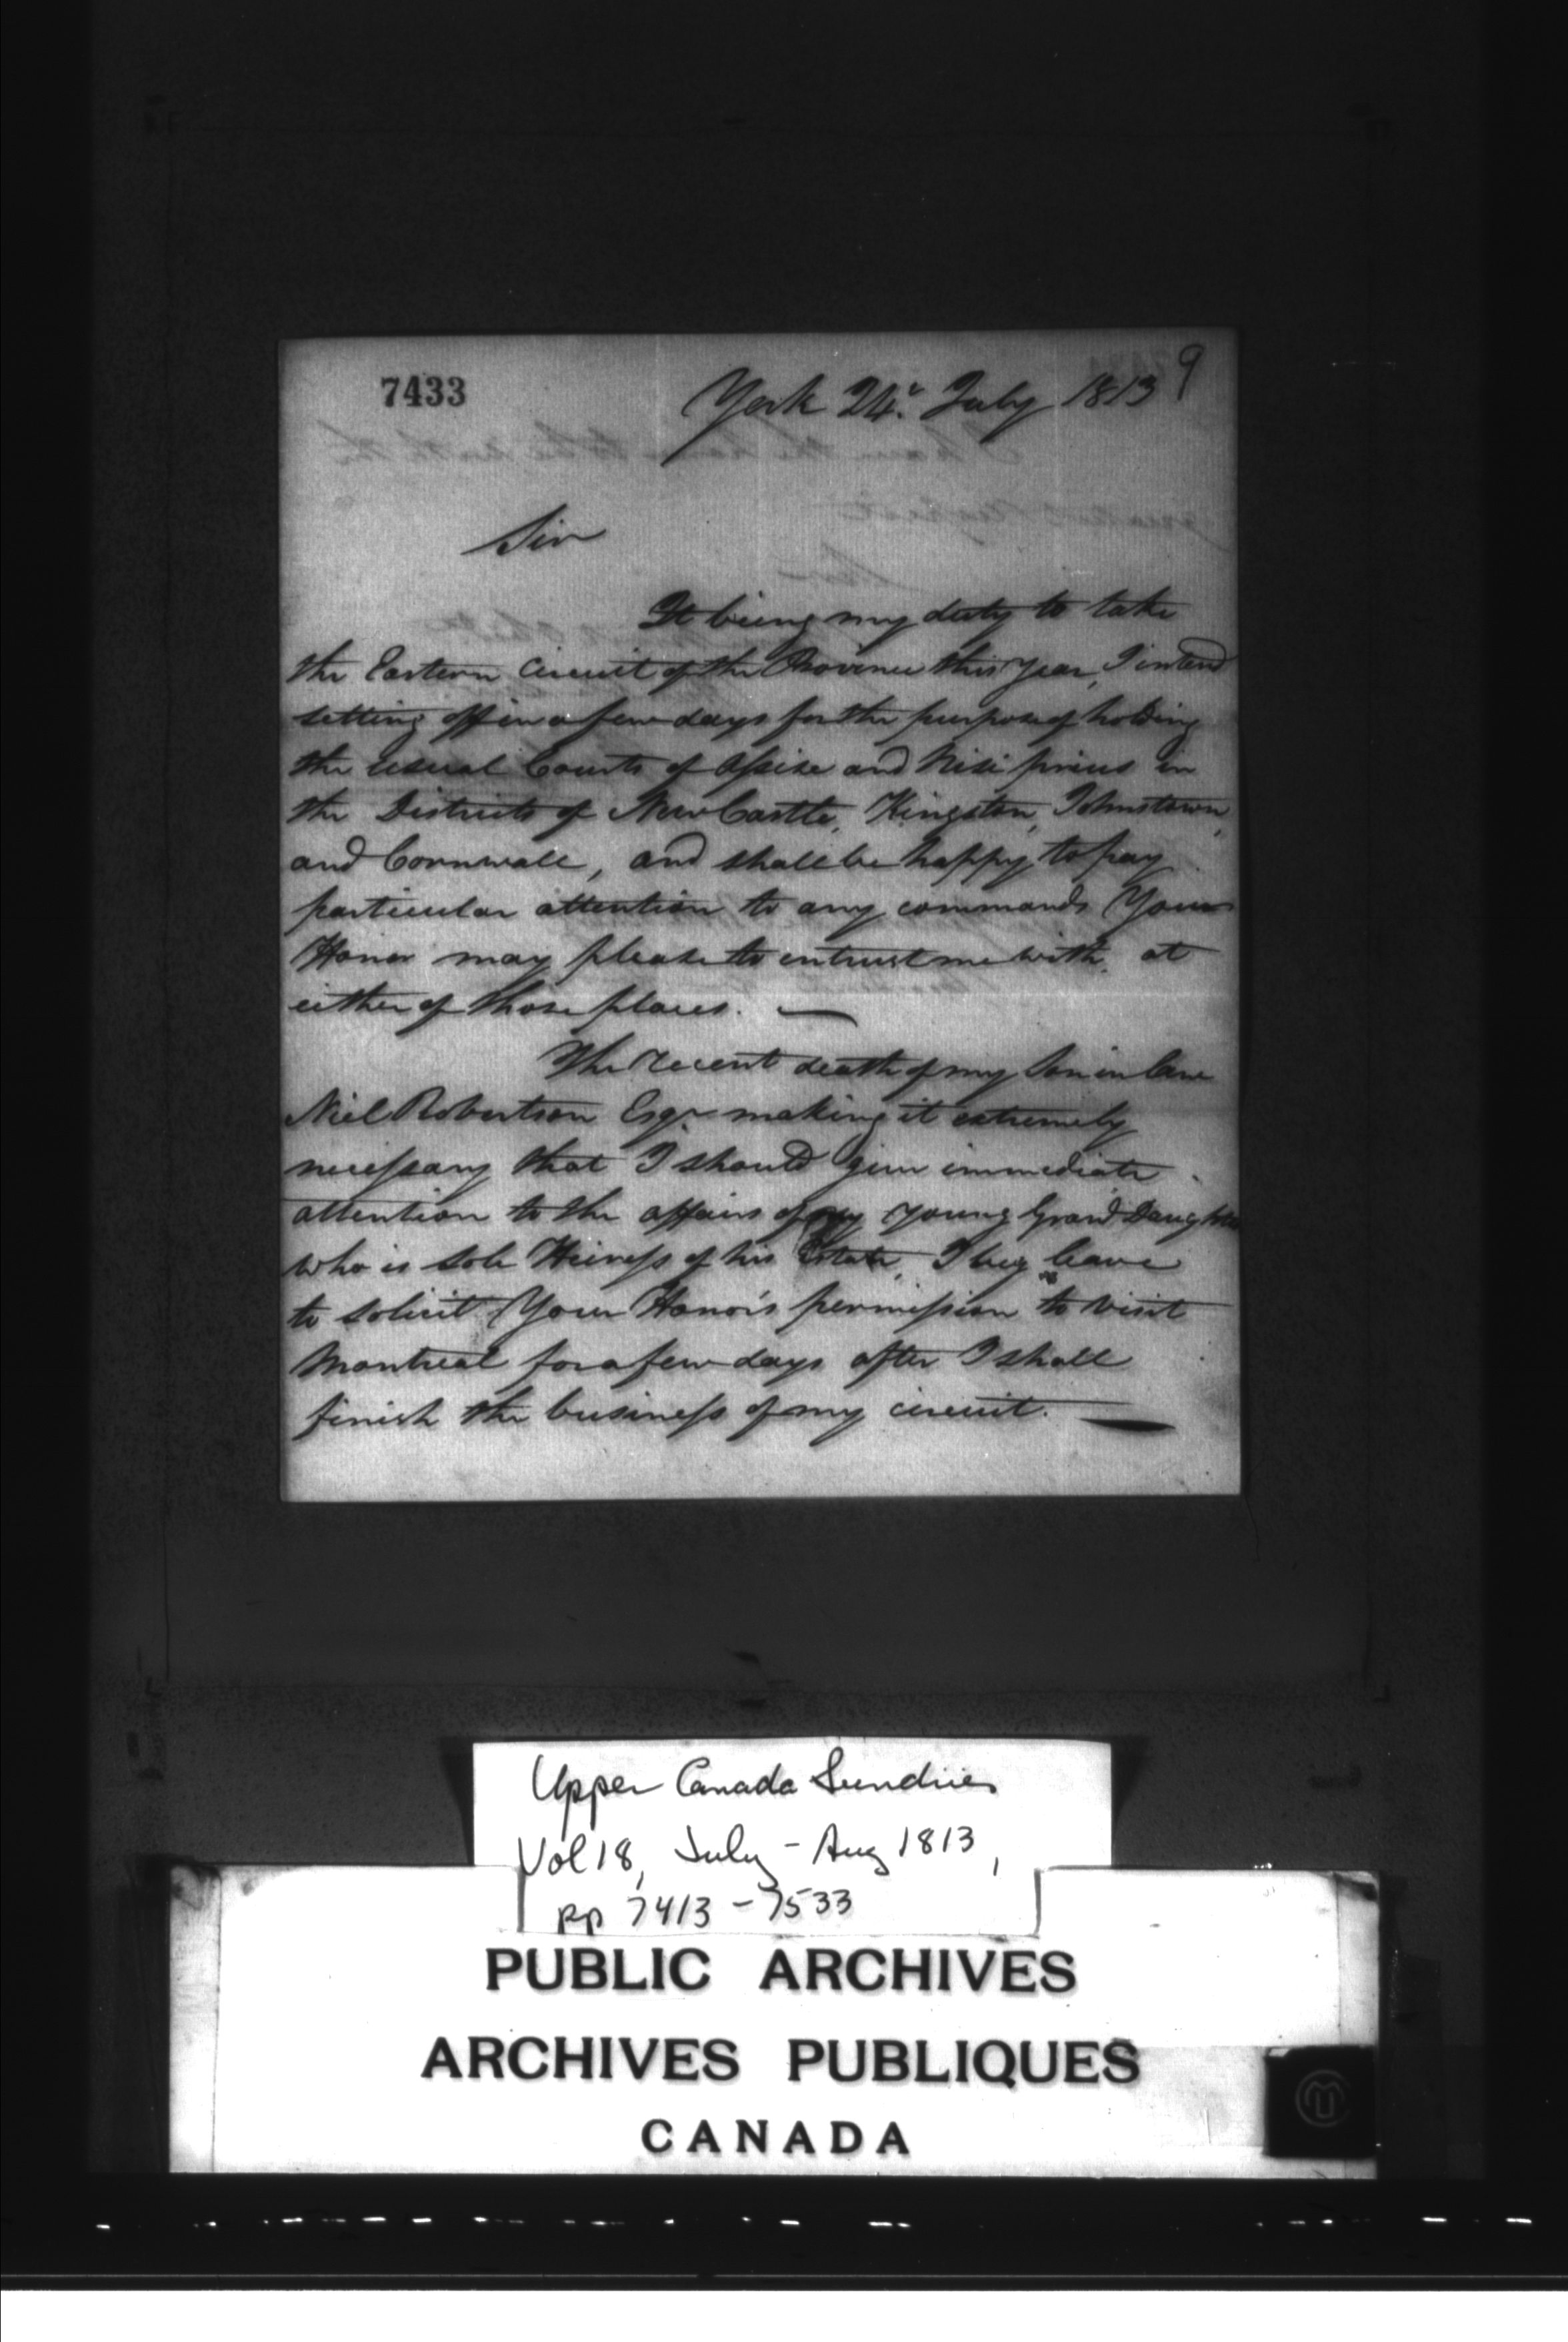 7433
9
York 24. July 1813
Sir
It being my duty to take
the Eastern Circuit of the Province this year, I intend
setting off in a few days for the purpose of holding
the usual Courts of Assize and Nisi prius in
the Districts of New Castle, Kingston, Johnstown,
and Cornwall, and shall be happy to pay
particular attention to any commands Your
Honor may please to entrust me with, at
either of those places. —
The recent death of my Son in law
Niel Robertson Esqr. making it extremely
necessary that I should give immediate
attention to the affairs of my young Grand Daughter
who is sole Heiress of his Estate, I beg leave
to solicit Your Honor's permission to visit
Montreal for a few days after I shall
finish the business of my circuit. —
Upper Canada Sundries
Vol 18, July - Aug 1813,
pp 7413 - 7533
PUBLIC ARCHIVES
ARCHIVES PUBLIQUES
CANADA